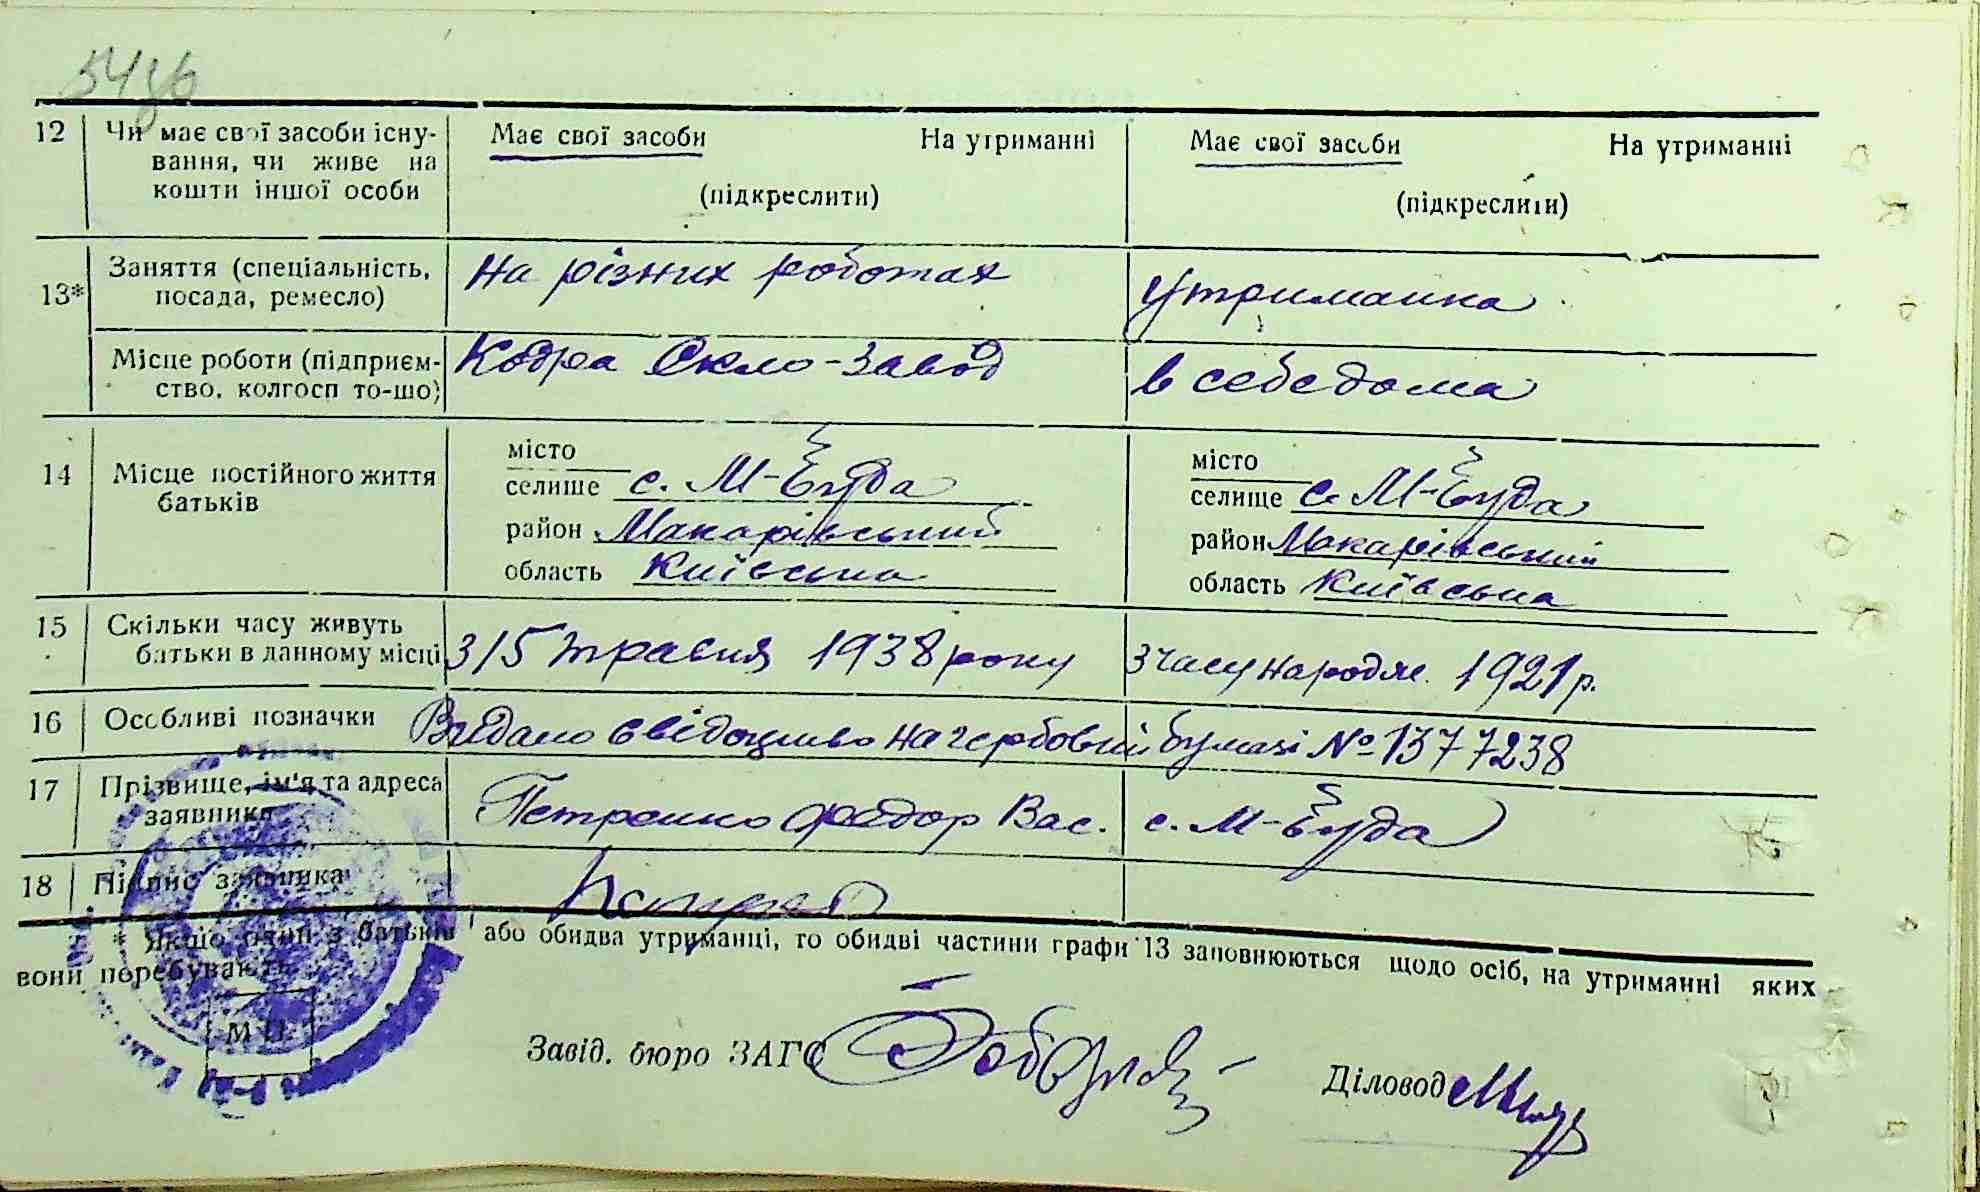 54зв
12 Чи має свої засоби існу-
вання, чи живе на
кошти іншої особи
Має свої засоби На утриманні
(підкреслити)
Має свої засоби На утриманні
(підкреслити)
13* Заняття (спеціальність,
посада, ремесло)
На різних роботах
Утриманка
Місце роботи (підприєм-
ство, колгосп то-що)
Кодра Скло-завод
в себе дома
14 Місце постійного життя
батьків
місто
селище с. М-Буда
район Макарівський
область Київська
місто
селище с. М-Буда
район Макарівський
область Київська
15 Скільки часу живуть
батьки в данному місці
З 15 травня 1938 року
З часу народж. 1921 р.
16 Особливі позначки
Видано свідоцтво на гербовій бумазі № 1377238
17 Прізвище, ім'я та адреса
заявника
Петренко Федор Вас. с. М-Буда
18 Підпис заявника
* Якщо один з батьків або обидва утриманці, то обидві частини графи 13 заповнюються щодо осіб, на утриманні яких
вони перебувають.
М П.
Завід. бюро ЗАГС
Діловод